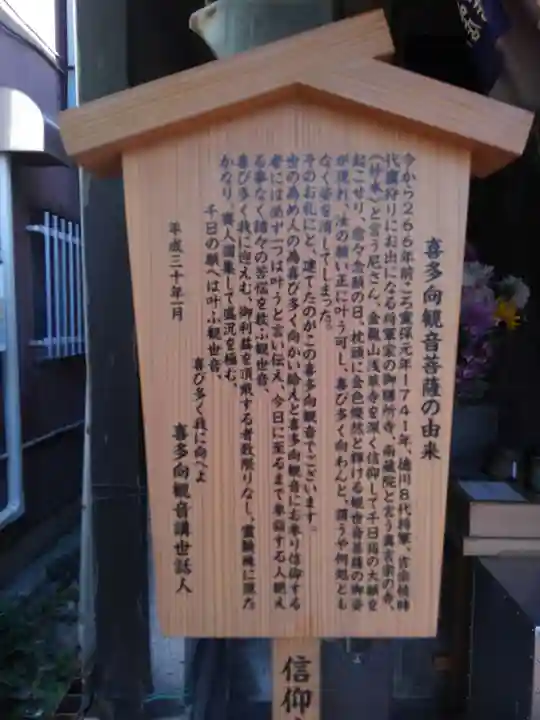 喜多向観音菩薩の由来
今から266年前ごろ寛保元年1741年、徳川8代将軍、吉宗候時
代鷹狩りにお出になる将軍家の御膳所寺、南蔵院と言う真言宗の寺、
と言う尼さん、金龍山浅草寺を深く信仰して千日詣の大願を
起こせり、愈々念願の日、枕頭に金色燦然と輝ける観世音菩薩の御姿
が現れ、汝の願い正に叶う可し、喜び多く向わんと、謂うや何処とも
なく姿を消してしまった。
そのお礼にと、建てたのがこの喜多向観音でございます。
世の為め人の為喜び多く向かい給えと喜多向観音にお参り信仰する
者には必ず一つは叶うと言い伝え、今日に至るまで参詣する人絶え
る事なく諸々の苦悩を救ふ観世音、
喜び多く我に迎えむ、御利益を頂戴する者数限りなし、霊験機に照た
かなり、寄人国集して盛況を極む、
千日の願へは叶ふ観世音、
喜び多く我に向へよ
平成三十年一月
喜多向観音講世話人
信仰